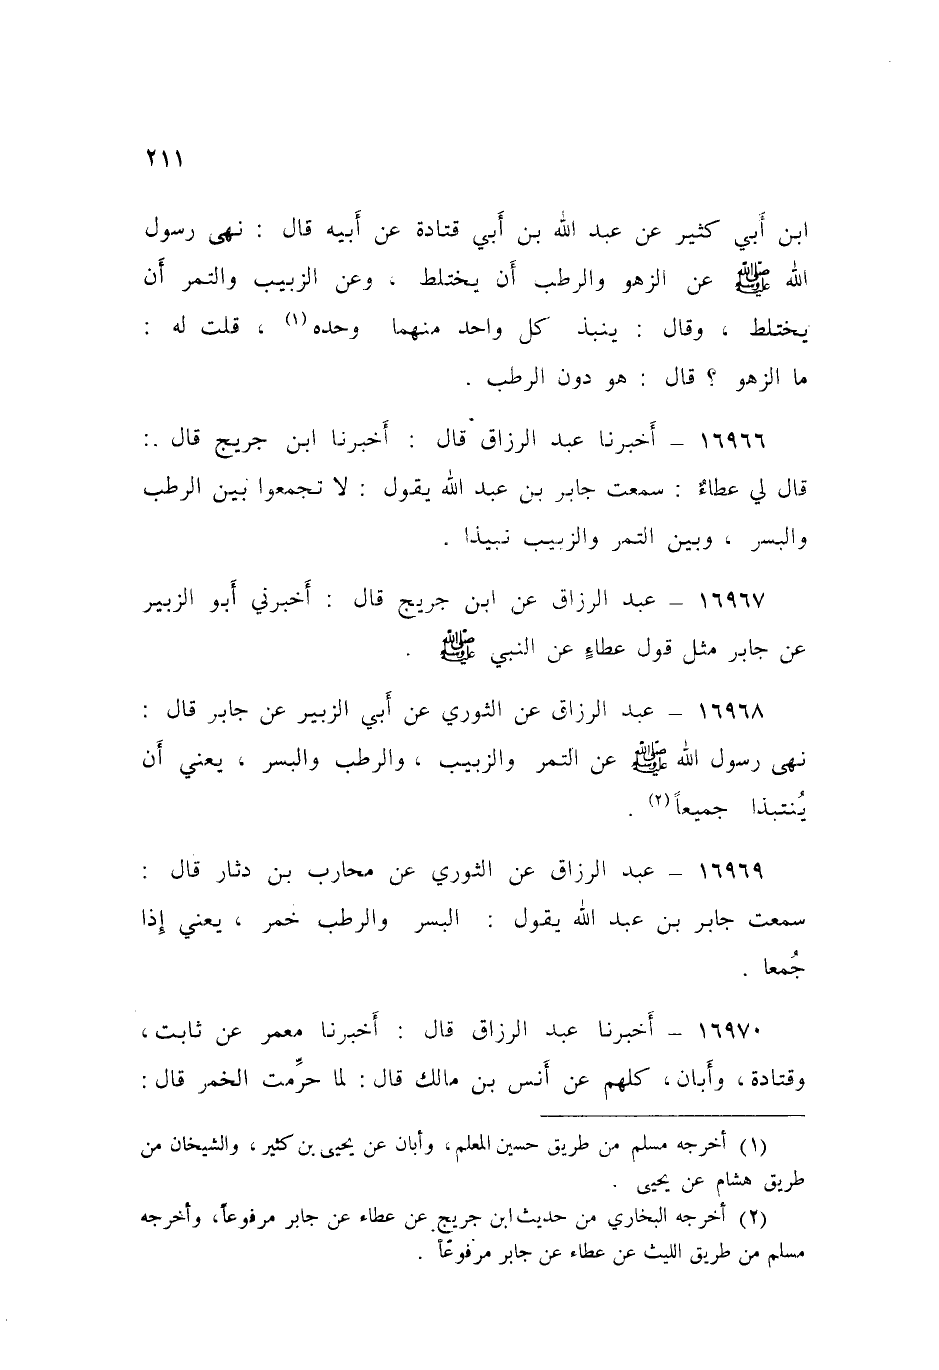 ٢١١
ابن أَبي كثير عن عبد الله بن أَبي قتادة عن أَبيه قال : نهى رسول
الله ﷺ عن الزهو والرطب أَن يختلط ، وعن الزبيب والتمر أَن
يختلط ، وقال : ينبذ كل واحد منهما وحده(١) ، قلت له :
ما الزهو ؟ قال : هو دون الرطب .
١٦٩٦٦ – أَخبرنا عبد الرزاق قال : أَخبرنا ابن جريج قال :
قال لي عطاءٌ : سمعت جابر بن عبد الله يقول : لا تجمعوا بين الرطب
والبسر ، وبين التمر والزبيب نبيذا .
١٦٩٦٧ – عبد الرزاق عن ابن جريج قال : أَخبرني أَبو الزبير
عن جابر مثل قول عطاءٍ عن النبي ﷺ .
١٦٩٦٨ – عبد الرزاق عن الثوري عن أَبي الزبير عن جابر قال :
نهى رسول الله ﷺ عن التمر والزبيب ، والرطب والبسر ، يعني أَن
يُنتبذا جميعاً(٢) .
١٦٩٦٩ – عبد الرزاق عن الثوري عن محارب بن دثار قال :
سمعت جابر بن عبد الله يقول : البسر والرطب خمر ، يعني إِذا
جُمعا .
١٦٩٧٠ – أَخبرنا عبد الرزاق قال : أَخبرنا معمر عن ثابت ،
وقتادة ، وأَبان ، كلهم عن أَنس بن مالك قال : لما حرِّمت الخمر قال :
(١) أخرجه مسلم من طريق حسين المعلم ، وأبان عن يحيى بن كثير ، والشيخان من
طريق هشام عن يحيى .
(٢) أخرجه البخاري من حديث ابن جريج عن عطاء عن جابر مرفوعاً ، وأخرجه
مسلم من طريق الليث عن عطاء عن جابر مرفوعاً .